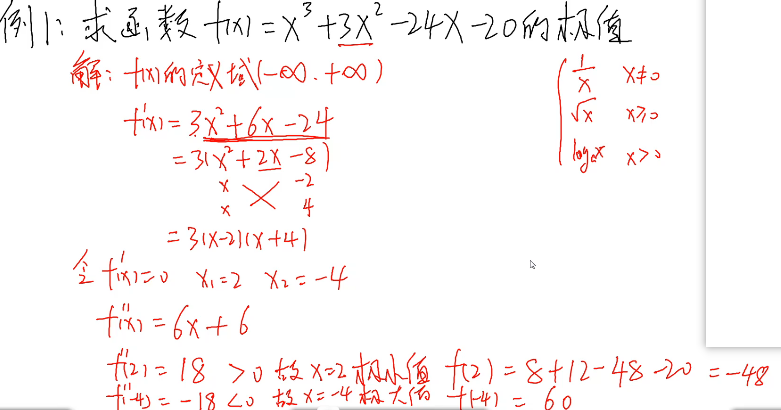 例1：求函数 f(x)=x³+3x²-24x-20的极值
解：f(x)的定义域(-∞.+∞)
f'(x)=3x²+6x-24
=3(x²+2x-8)
x -2
x 4
=3(x-2)(x+4)
令f'(x)=0 x₁=2 x₂=-4
f''(x)=6x+6
f''(2)=18 >0 故x=2极小值 f(2)=8+12-48-20=-48
f''(-4)=-18<0 故x=-4极大值 f(-4)=60
1/x x≠0
√x x≥0
logₐx x>0